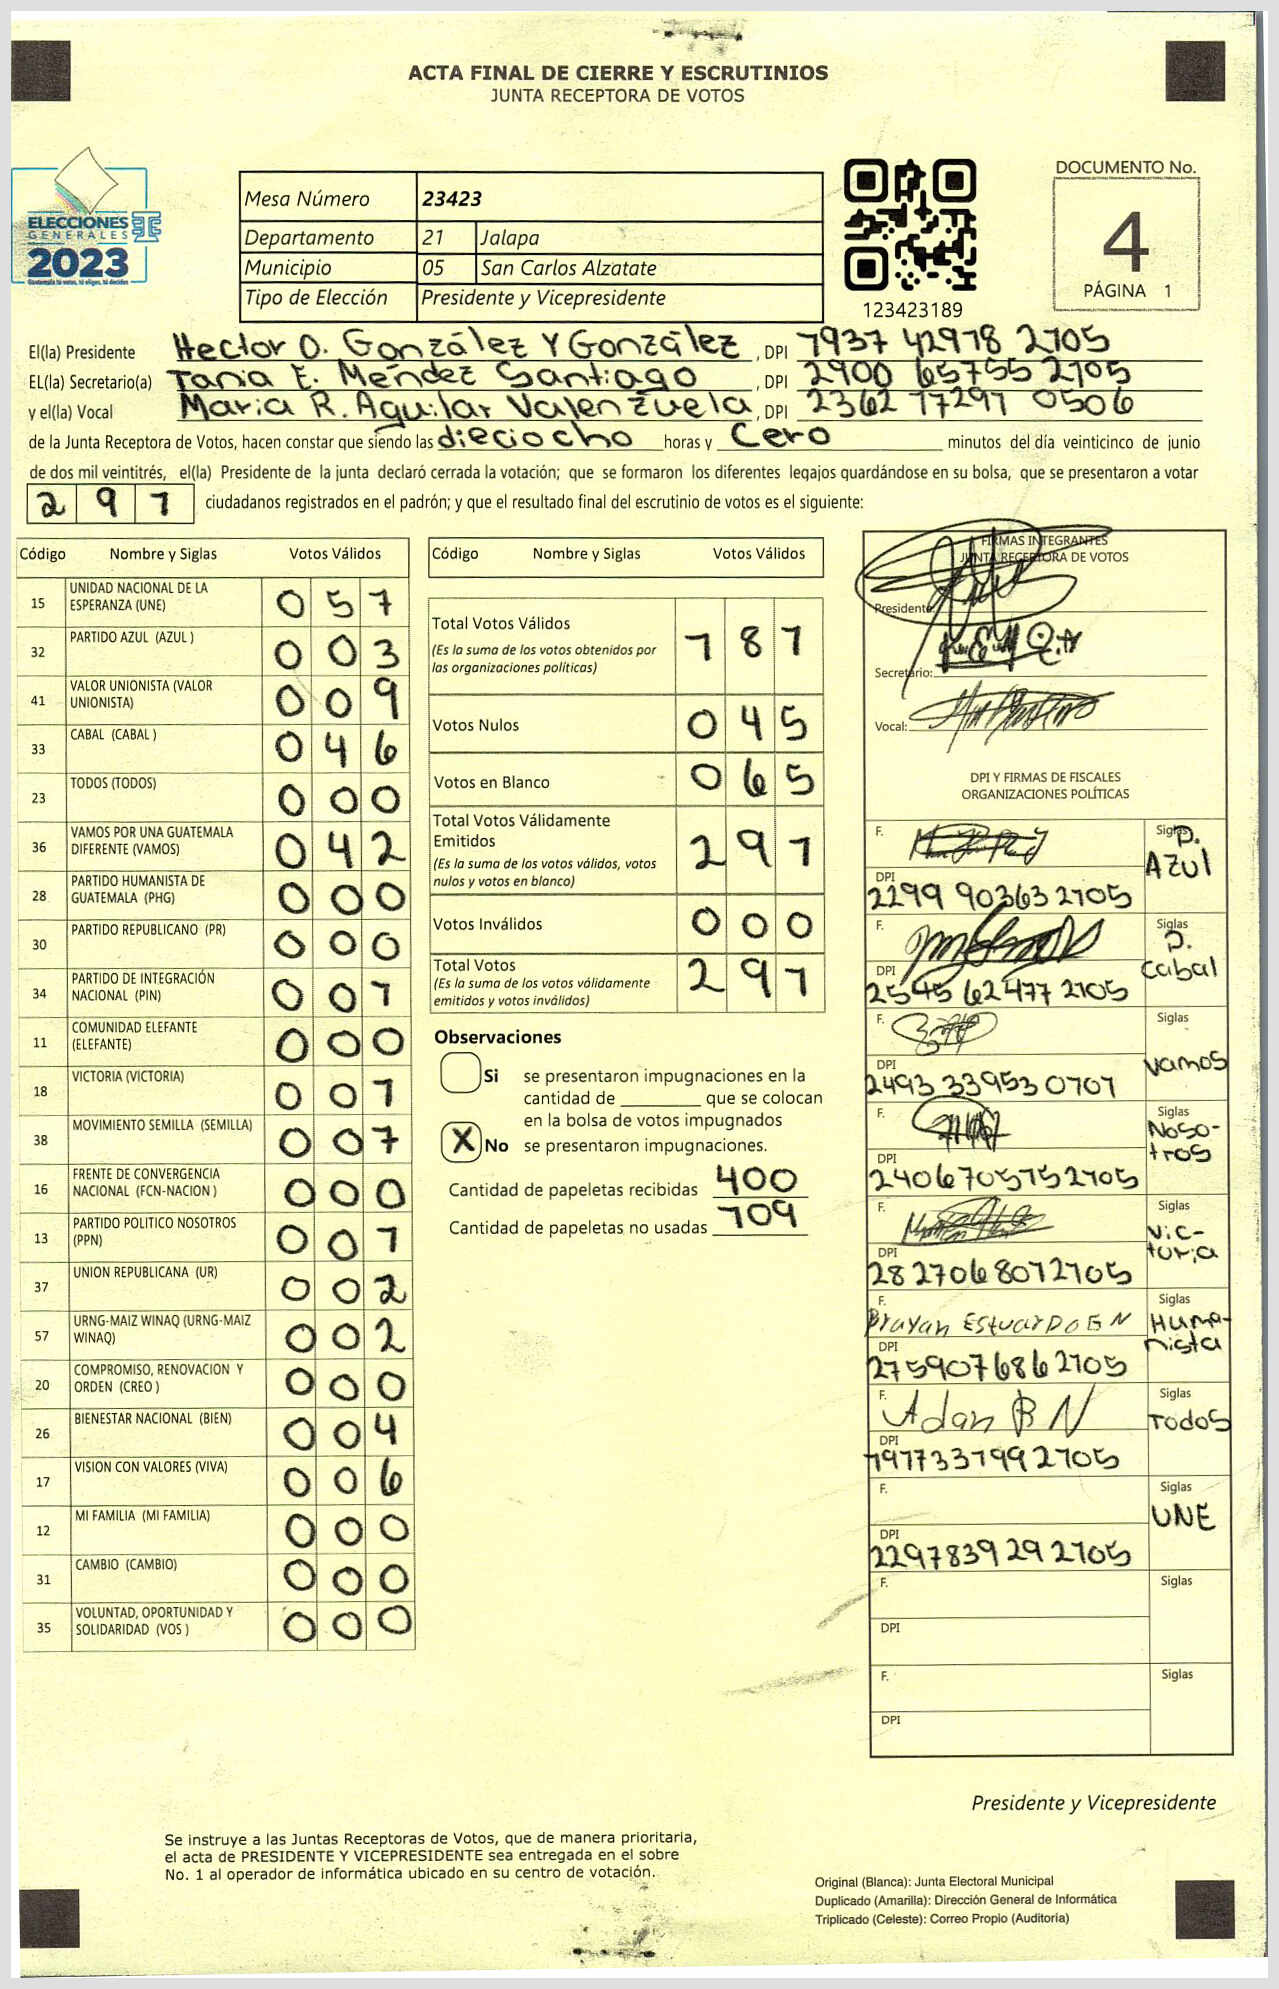 ACTA FINAL DE CIERRE Y ESCRUTINIOS
JUNTA RECEPTORA DE VOTOS
ELECCIONES
GENERALES
2023
Guatemala tú votas, tú eliges, tú decides
Mesa Número 23423
Departamento 21 Jalapa
Municipio 05 San Carlos Alzatate
Tipo de Elección Presidente y Vicepresidente
123423189
DOCUMENTO No.
4
PÁGINA 1
El(la) Presidente Hector O. González Y González , DPI 1937 42918 2105
EL(la) Secretario(a) Tania E. Méndez Santiago , DPI 2900 65755 2105
y el(la) Vocal Maria R. Aguilar Valenzuela , DPI 2362 11291 0506
de la Junta Receptora de Votos, hacen constar que siendo las dieciocho horas y Cero minutos del día veinticinco de junio
de dos mil veintitrés, el(la) Presidente de la junta declaró cerrada la votación; que se formaron los diferentes legajos guardándose en su bolsa, que se presentaron a votar
291 ciudadanos registrados en el padrón; y que el resultado final del escrutinio de votos es el siguiente:
Código Nombre y Siglas Votos Válidos
15 UNIDAD NACIONAL DE LA ESPERANZA (UNE) 057
32 PARTIDO AZUL (AZUL ) 003
41 VALOR UNIONISTA (VALOR UNIONISTA) 009
33 CABAL (CABAL ) 046
23 TODOS (TODOS) 000
36 VAMOS POR UNA GUATEMALA DIFERENTE (VAMOS) 042
28 PARTIDO HUMANISTA DE GUATEMALA (PHG) 000
30 PARTIDO REPUBLICANO (PR) 000
34 PARTIDO DE INTEGRACIÓN NACIONAL (PIN) 001
11 COMUNIDAD ELEFANTE (ELEFANTE) 000
18 VICTORIA (VICTORIA) 001
38 MOVIMIENTO SEMILLA (SEMILLA) 007
16 FRENTE DE CONVERGENCIA NACIONAL (FCN-NACION ) 000
13 PARTIDO POLITICO NOSOTROS (PPN) 001
37 UNION REPUBLICANA (UR) 002
57 URNG-MAIZ WINAQ (URNG-MAIZ WINAQ) 002
20 COMPROMISO, RENOVACION Y ORDEN (CREO ) 000
26 BIENESTAR NACIONAL (BIEN) 004
17 VISION CON VALORES (VIVA) 006
12 MI FAMILIA (MI FAMILIA) 000
31 CAMBIO (CAMBIO) 000
35 VOLUNTAD, OPORTUNIDAD Y SOLIDARIDAD (VOS ) 000
Código Nombre y Siglas Votos Válidos
Total Votos Válidos 181
(Es la suma de los votos obtenidos por
las organizaciones políticas)
Votos Nulos 045
Votos en Blanco 065
Total Votos Válidamente
Emitidos 291
(Es la suma de los votos válidos, votos
nulos y votos en blanco)
Votos Inválidos 000
Total Votos 291
(Es la suma de los votos válidamente
emitidos y votos inválidos)
Observaciones
Si se presentaron impugnaciones en la
cantidad de ________ que se colocan
en la bolsa de votos impugnados
X No se presentaron impugnaciones.
Cantidad de papeletas recibidas 400
Cantidad de papeletas no usadas 109
FIRMAS INTEGRANTES
JUNTA RECEPTORA DE VOTOS
Presidente:
Secretario:
Vocal:
DPI Y FIRMAS DE FISCALES
ORGANIZACIONES POLÍTICAS
F. Siglas P. Azul
DPI 2299 90363 2105
F. Siglas P. Cabal
DPI 2545 62477 2105
F. Siglas Vamos
DPI 2493 33953 0101
F. Siglas Noso-tros
DPI 2406705152105
F. Siglas Vic-toria
DPI 2827068012105
F. Brayan Estuardo G N Siglas Huma-nista
DPI 2759076862105
F. Adan B N Siglas Todos
DPI 1977331992105
F. Siglas UNE
DPI 2297839292105
F. Siglas
DPI
F. Siglas
DPI
Presidente y Vicepresidente
Se instruye a las Juntas Receptoras de Votos, que de manera prioritaria,
el acta de PRESIDENTE Y VICEPRESIDENTE sea entregada en el sobre
No. 1 al operador de informática ubicado en su centro de votación.
Original (Blanca): Junta Electoral Municipal
Duplicado (Amarilla): Dirección General de Informática
Triplicado (Celeste): Correo Propio (Auditoría)